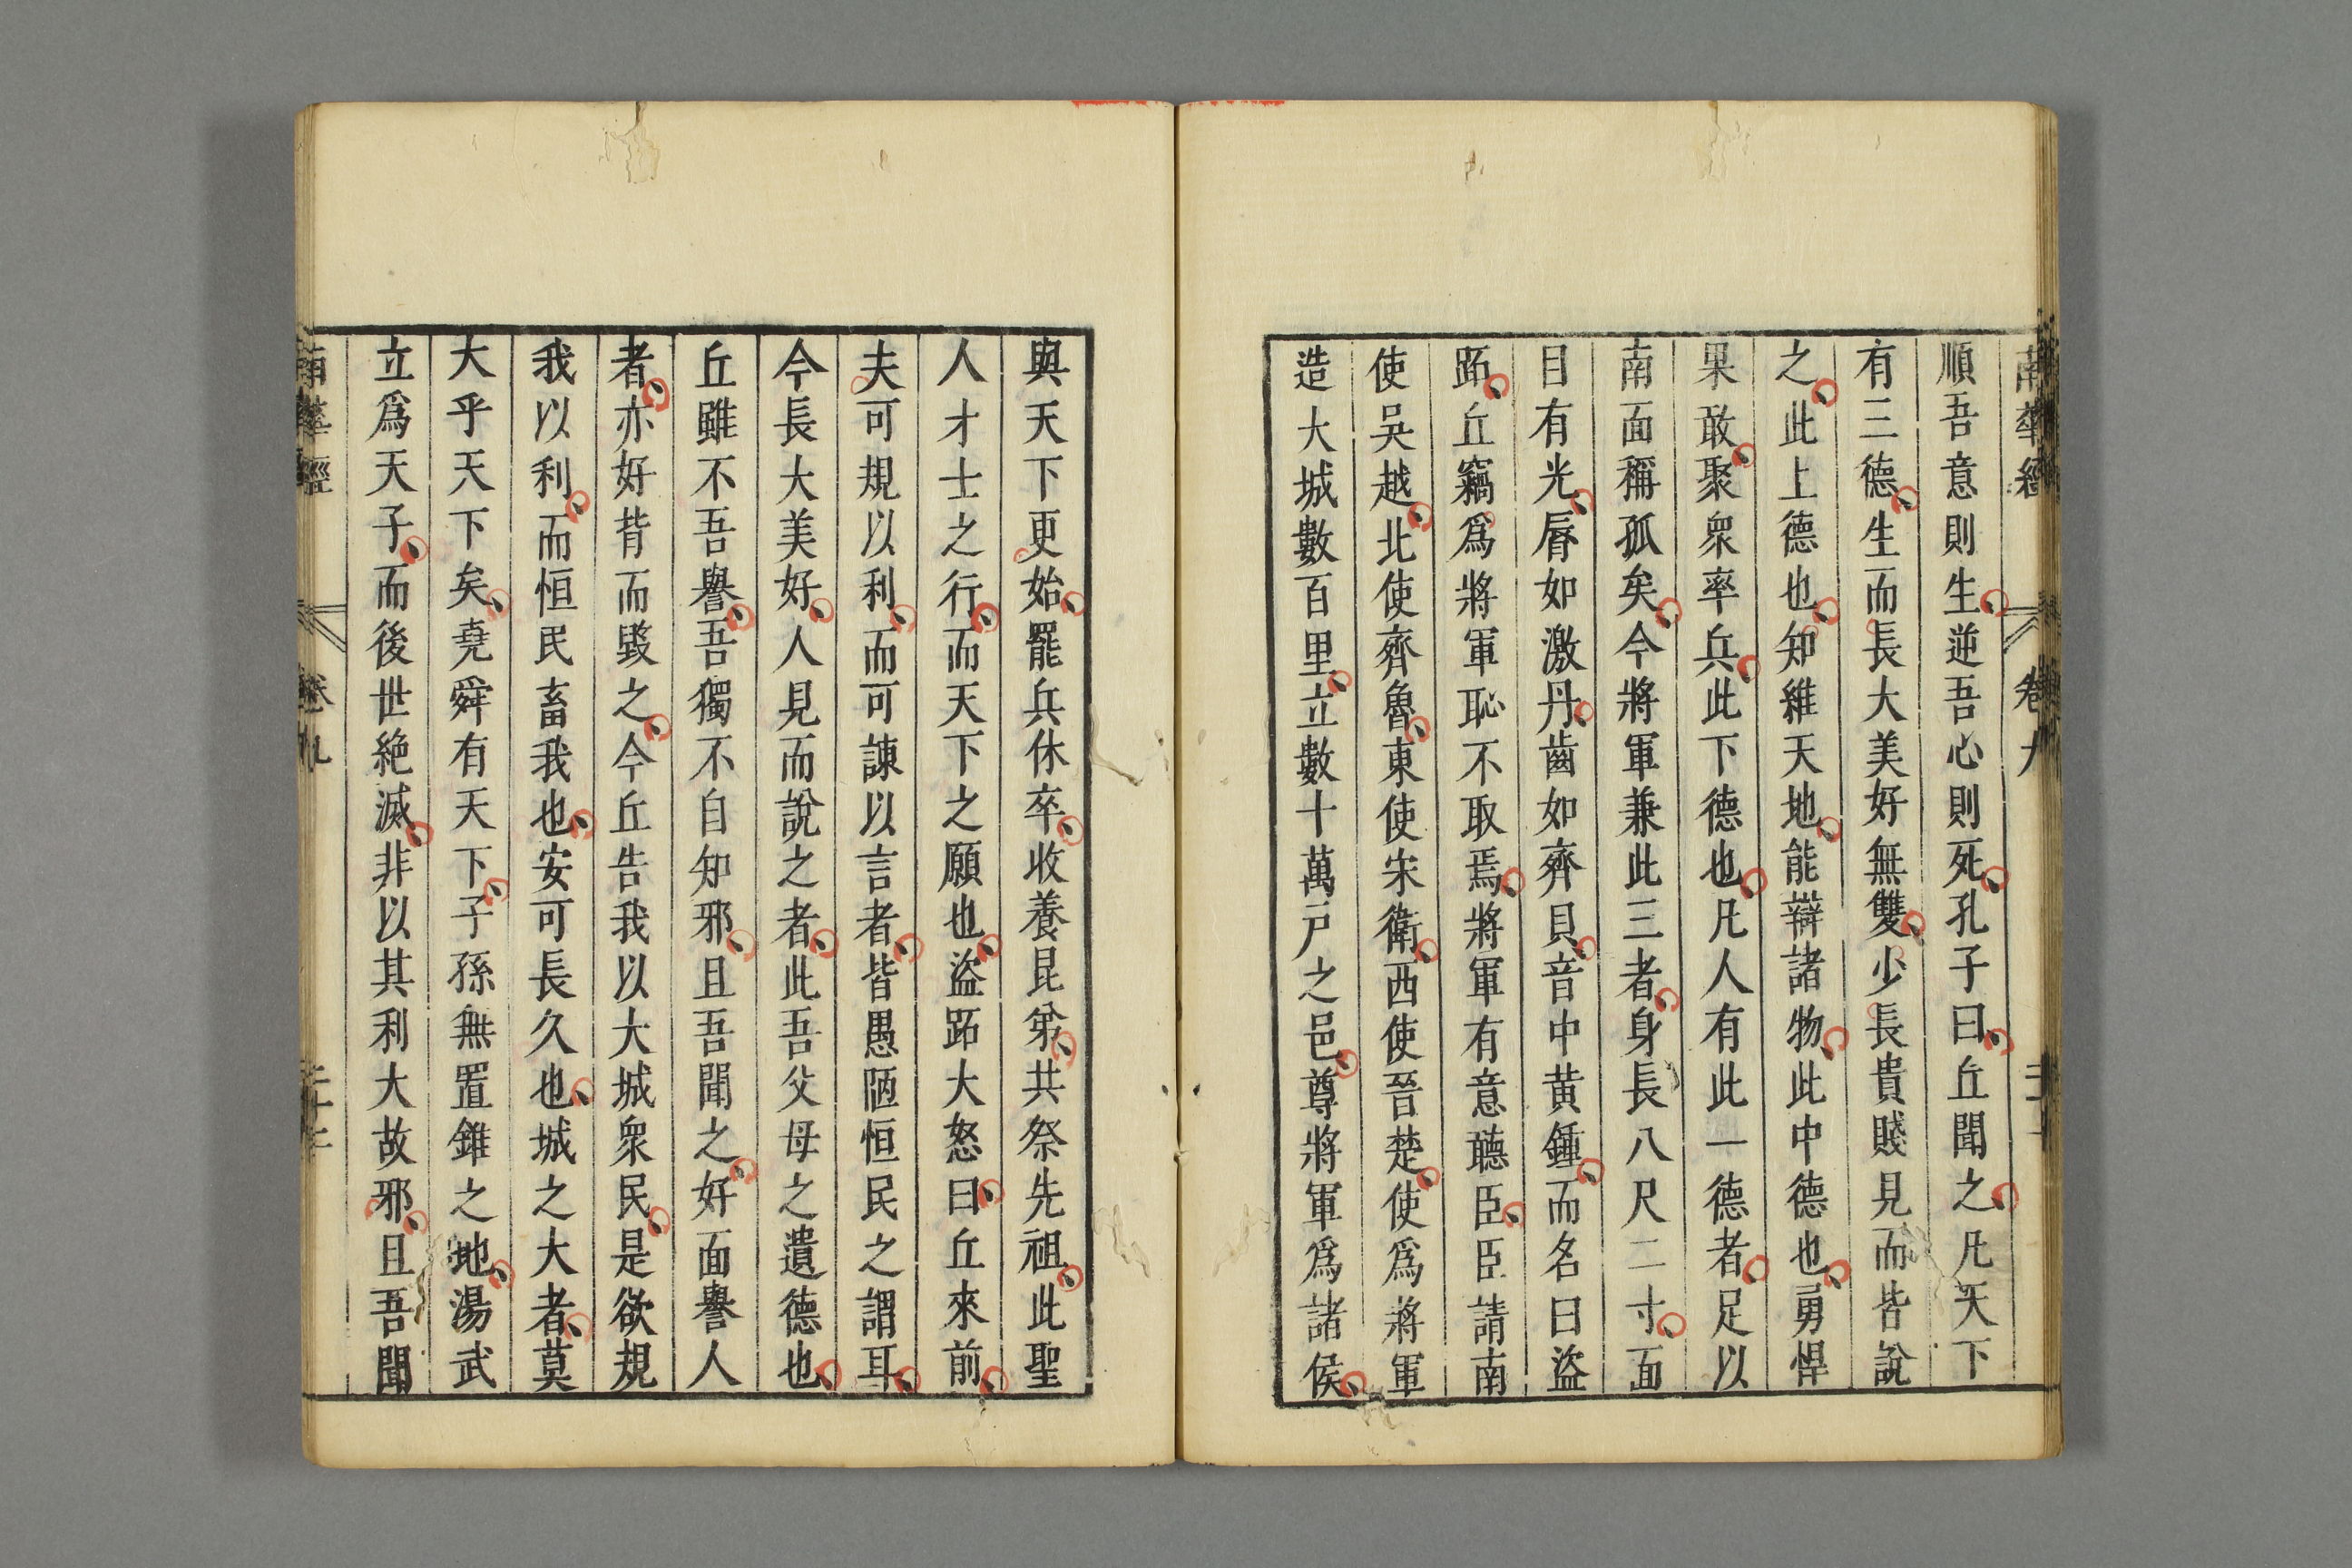 南華經 卷九
順吾意則生逆吾心則死孔子曰丘聞之凡天下
有三德生而長大美好無雙少長貴賤見而皆說
之此上德也知維天地能辯諸物此中德也勇悍
果敢聚衆率兵此下德也凡人有此一德者足以
南面稱孤矣今將軍兼此三者身長八尺二寸面
目有光脣如激丹齒如齊貝音中黃鍾而名曰盜
跖丘竊爲將軍恥不取焉將軍有意聽臣臣請南
使吳越北使齊魯東使宋衛西使晉楚使爲將軍
造大城數百里立數十萬戶之邑尊將軍爲諸侯
與天下更始罷兵休卒收養昆弟共祭先祖此聖
人才士之行而天下之願也盜跖大怒曰丘來前
夫可規以利而可諫以言者皆愚陋恒民之謂耳
今長大美好人見而說之者此吾父母之遺德也
丘雖不吾譽吾獨不自知邪且吾聞之好面譽人
者亦好背而毀之今丘告我以大城衆民是欲規
我以利而恒民畜我也安可長久也城之大者莫
大乎天下矣堯舜有天下子孫無置錐之地湯武
立爲天子而後世絶滅非以其利大故邪且吾聞
南華經 卷九